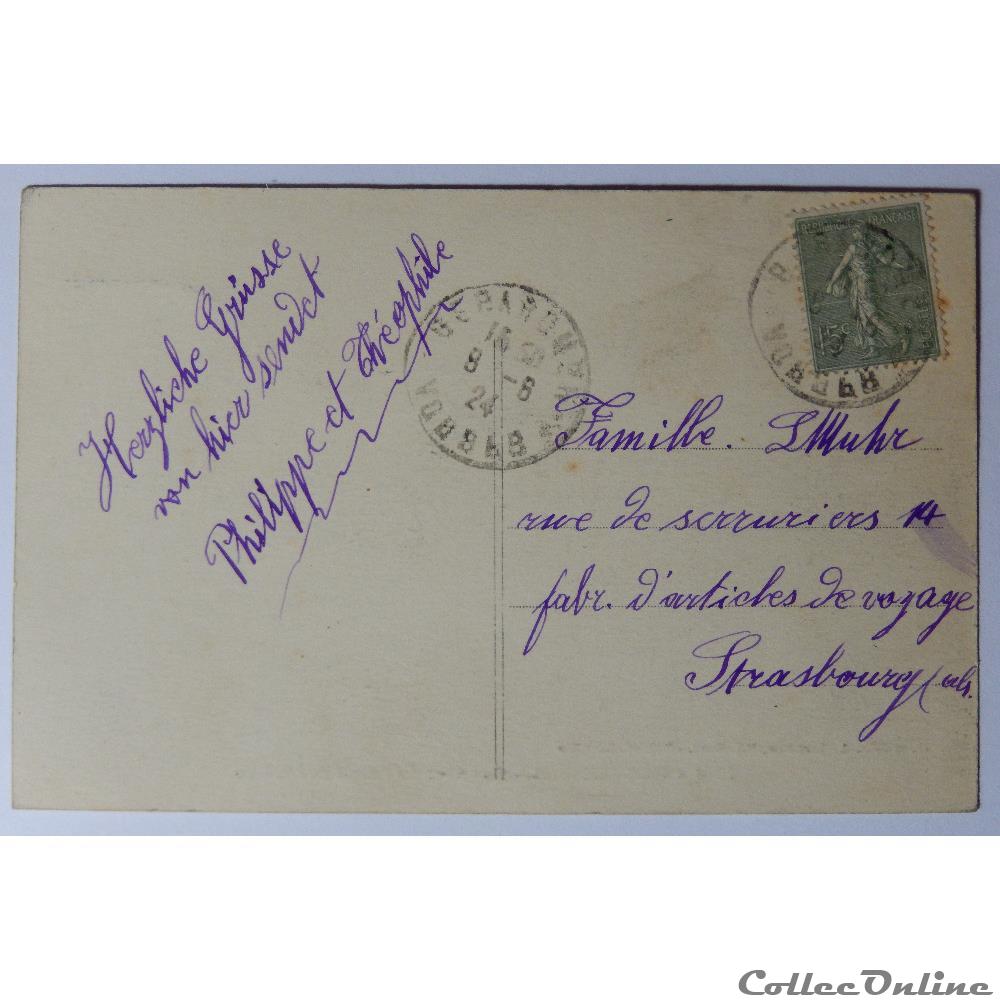 Herzliche Grüsse
von hier sendet
Philippe et Théophile
GERARDMER
16
8 -6
24
VOSGES
REPUBLIQUE FRANÇAISE
15c
Famille. L Muhr
rue de serruriers 14
fabr. d'articles de voyage
Strasbourg (als.
CollecOnline